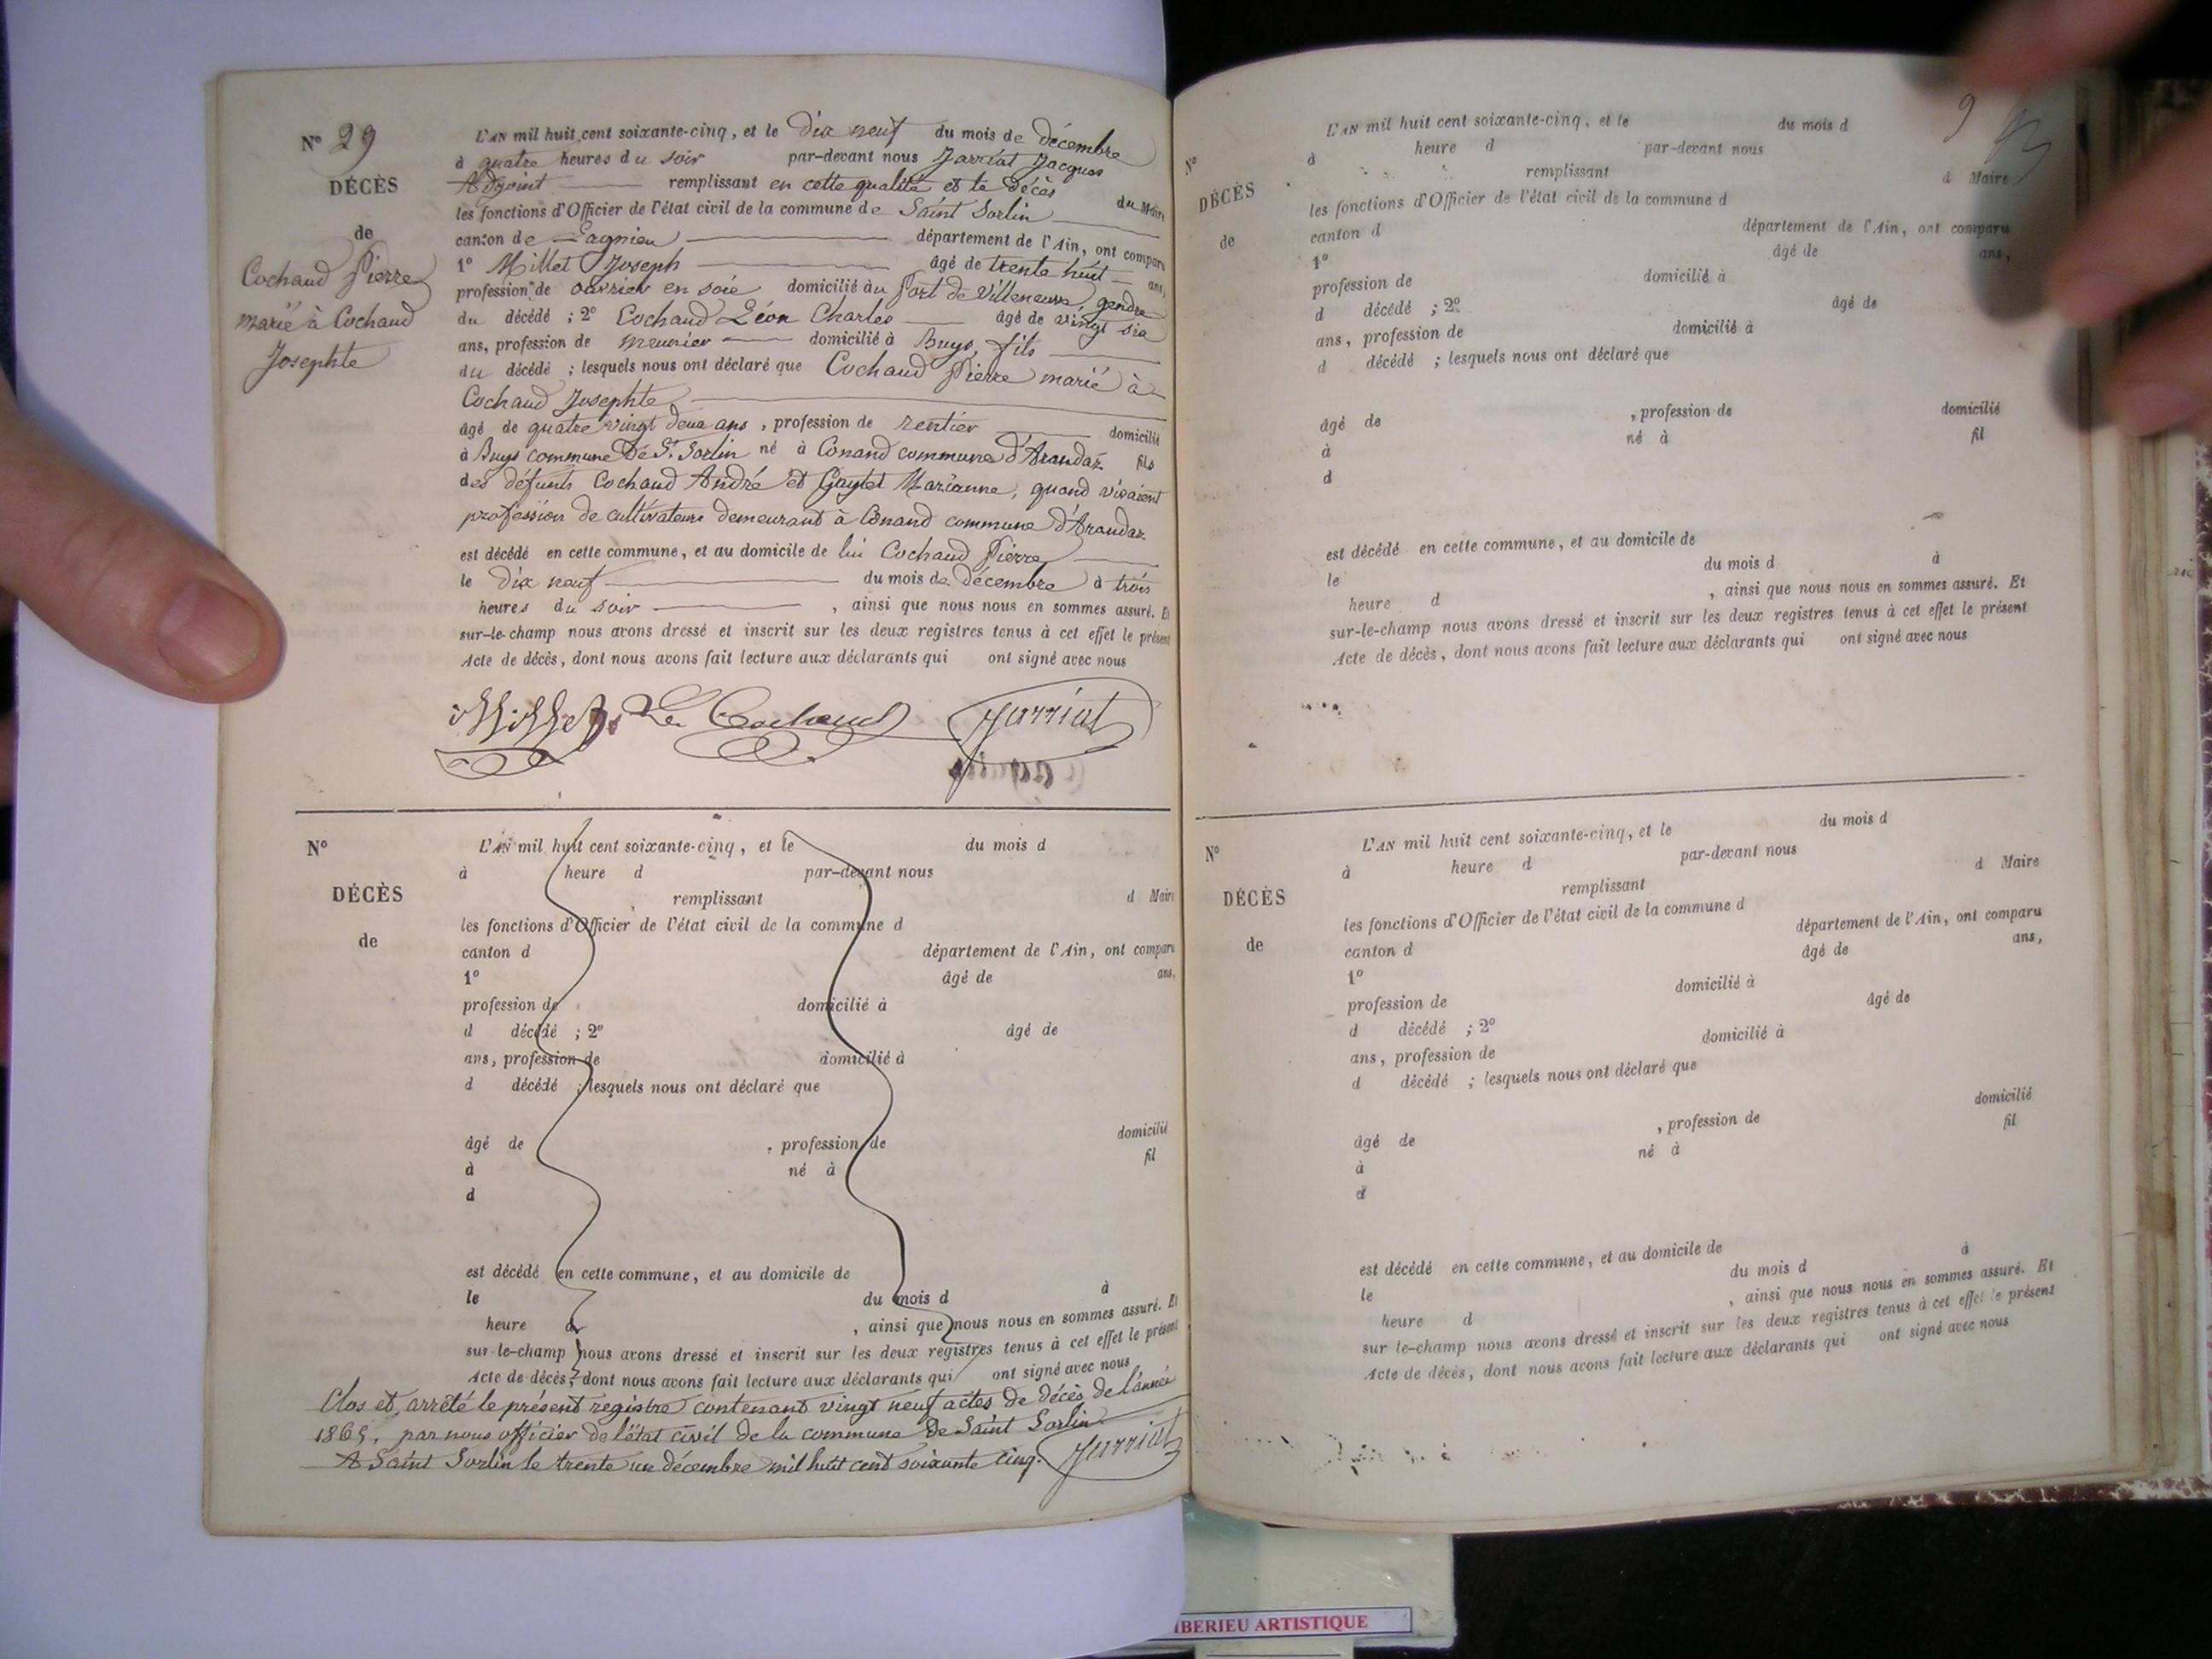 N° 29
DÉCÈS
de
Cochaud Pierre
marié à Cochaud
Josephte
L'AN mil huit cent soixante-cinq, et le dix neuf du mois de décembre
à quatre heures du soir par-devant nous Jarriat Jacques
Adjoint remplissant en cette qualité et le décès du Maire
les fonctions d'Officier de l'état civil de la commune de Saint Sorlin
canton de Lagnieu département de l'Ain, ont comparu
1° Millet Joseph âgé de trente huit ans,
profession de ouvrier en soie domicilié au Port de Villeneuve, gendre
du décédé ; 2° Cochaud Léon Charles âgé de vingt six
ans, profession de meunier domicilié à Buys, fils
du décédé ; lesquels nous ont déclaré que Cochaud Pierre marié à
Cochaud Josephte
âgé de quatre vingt deux ans, profession de rentier domicilié
à Buys commune de St Sorlin né à Conand commune d'Arandaz fils
des défunts Cochaud André et Gaytet Marianne, quand vivaient
profession de cultivateurs demeurant à Conand commune d'Arandaz
est décédé en cette commune, et au domicile de lui Cochaud Pierre
le dix neuf du mois de décembre à trois
heures du soir, ainsi que nous nous en sommes assuré. Et
sur-le-champ nous avons dressé et inscrit sur les deux registres tenus à cet effet le présent
Acte de décès, dont nous avons fait lecture aux déclarants qui ont signé avec nous
Millet Ln Cochaud Jarriat
N°
DÉCÈS
de
L'AN mil huit cent soixante-cinq, et le du mois d
à heure d par-devant nous
remplissant d Maire
les fonctions d'Officier de l'état civil de la commune d
canton d département de l'Ain, ont comparu
1° âgé de ans,
profession de domicilié à
d décédé ; 2° âgé de
ans, profession de domicilié à
d décédé ; lesquels nous ont déclaré que
âgé de , profession de domicilié
à né à fil
d
est décédé en cette commune, et au domicile de
le du mois d à
heure d , ainsi que nous nous en sommes assuré. Et
sur-le-champ nous avons dressé et inscrit sur les deux registres tenus à cet effet le présent
Acte de décès, dont nous avons fait lecture aux déclarants qui ont signé avec nous
Clos et arrêté le présent registre contenant vingt neuf actes de décès de l'année
1865, par nous officier de l'état civil de la commune de Saint Sorlin
A Saint Sorlin le trente un décembre mil huit cent soixante cinq. Jarriat
9
N°
DÉCÈS
de
L'AN mil huit cent soixante-cinq, et le du mois d
à heure d par-devant nous
remplissant d Maire
les fonctions d'Officier de l'état civil de la commune d
canton d département de l'Ain, ont comparu
1° âgé de ans,
profession de domicilié à
d décédé ; 2° âgé de
ans, profession de domicilié à
d décédé ; lesquels nous ont déclaré que
âgé de , profession de domicilié
à né à fil
d
est décédé en cette commune, et au domicile de
le du mois d à
heure d , ainsi que nous nous en sommes assuré. Et
sur-le-champ nous avons dressé et inscrit sur les deux registres tenus à cet effet le présent
Acte de décès, dont nous avons fait lecture aux déclarants qui ont signé avec nous
N°
DÉCÈS
de
L'AN mil huit cent soixante-cinq, et le du mois d
à heure d par-devant nous
remplissant d Maire
les fonctions d'Officier de l'état civil de la commune d
canton d département de l'Ain, ont comparu
1° âgé de ans,
profession de domicilié à
d décédé ; 2° âgé de
ans, profession de domicilié à
d décédé ; lesquels nous ont déclaré que
âgé de , profession de domicilié
à né à fil
d
est décédé en cette commune, et au domicile de
le du mois d à
heure d , ainsi que nous nous en sommes assuré. Et
sur-le-champ nous avons dressé et inscrit sur les deux registres tenus à cet effet le présent
Acte de décès, dont nous avons fait lecture aux déclarants qui ont signé avec nous
IBERIEU ARTISTIQUE